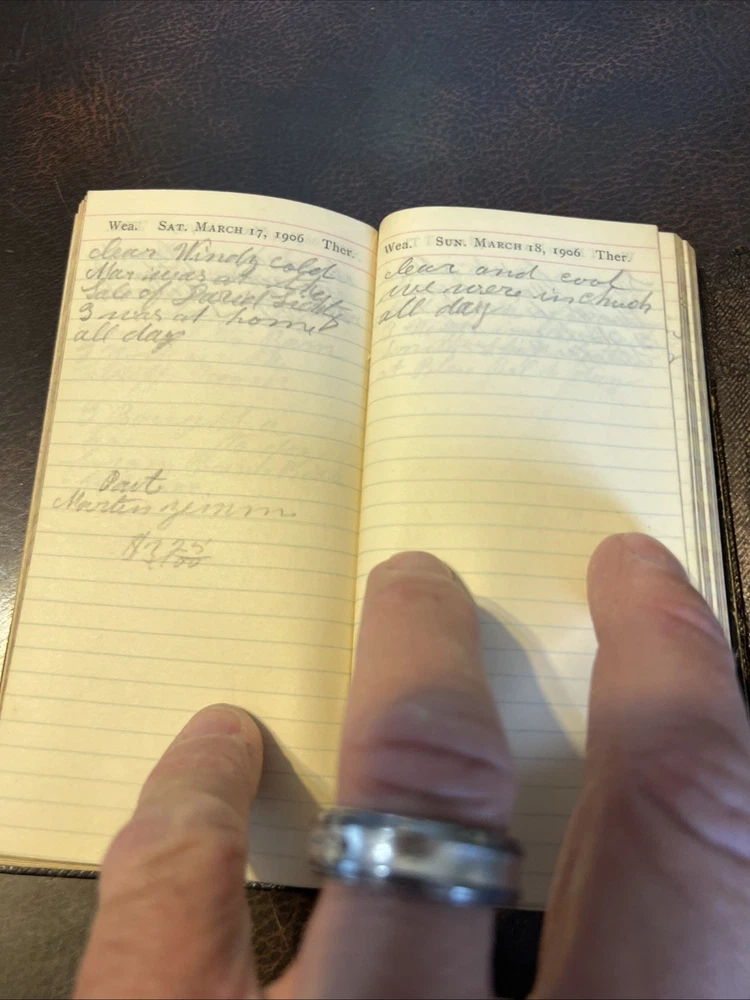 Wea. SAT. MARCH 17, 1906 Ther.
clear Windy cold
was at the
Sale of David
I was at home
all day
Martin zimm
$2 25
Wea. SUN. MARCH 18, 1906 Ther.
clear and cool
we were in chuch
all day